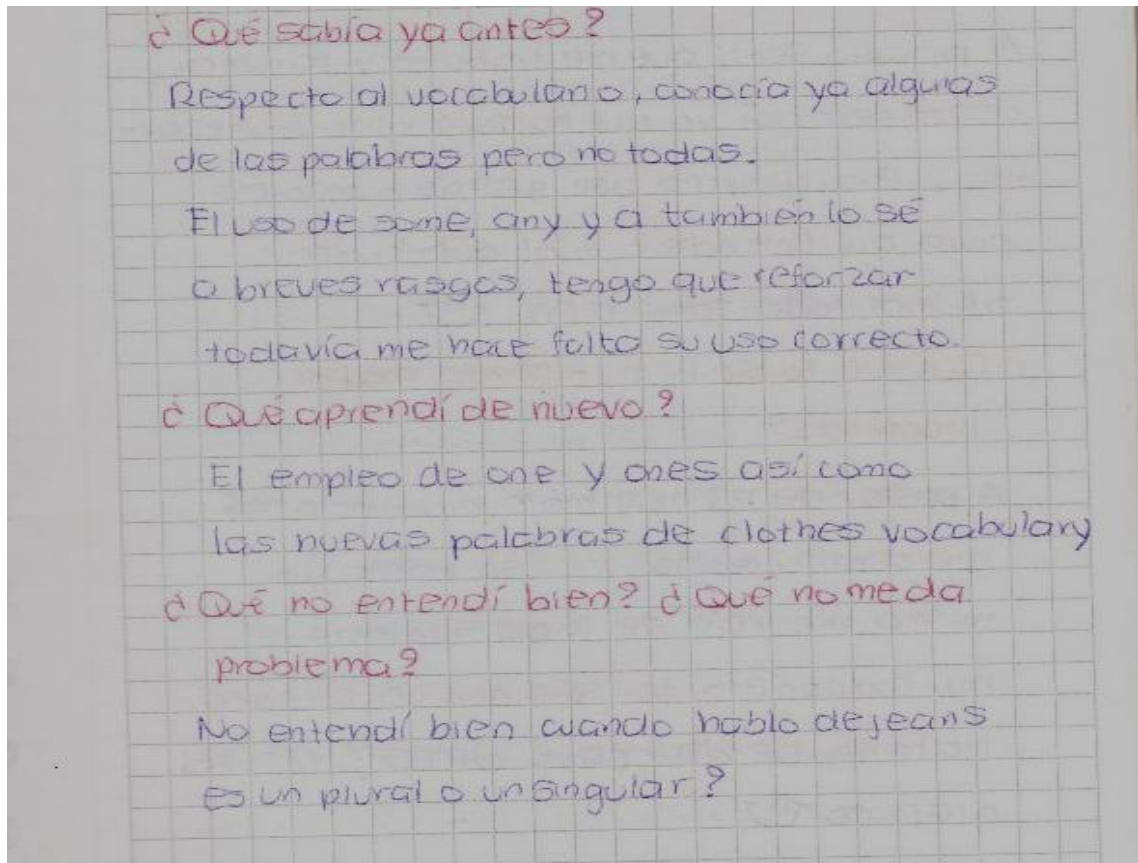 ¿Qué sabía ya antes?
Respecto al vocabulario, conocía ya algunas
de las palabras pero no todas.
El uso de some, any y a también lo sé
a breves rasgos, tengo que reforzar
todavía me hace falta su uso correcto.
¿Qué aprendí de nuevo?
El empleo de one y ones así como
las nuevas palabras de clothes vocabulary
¿Qué no entendí bien? ¿Qué no me da
problema?
No entendí bien cuando hablo de jeans
es un plural o un singular?